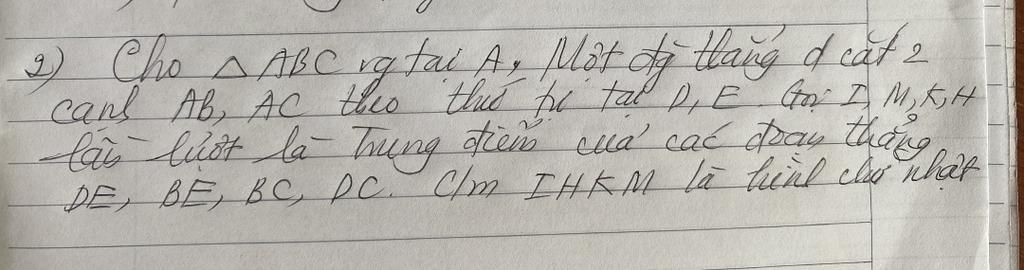 2) Cho △ ABC vg tại A, Một đg thẳng d cắt 2
cạnh AB, AC theo thứ tự tại D, E. Gọi I, M, K, H
lần lượt là Trung điểm của các đoạn thẳng
DE, BE, BC, DC. C/m IHKM là hình chữ nhật